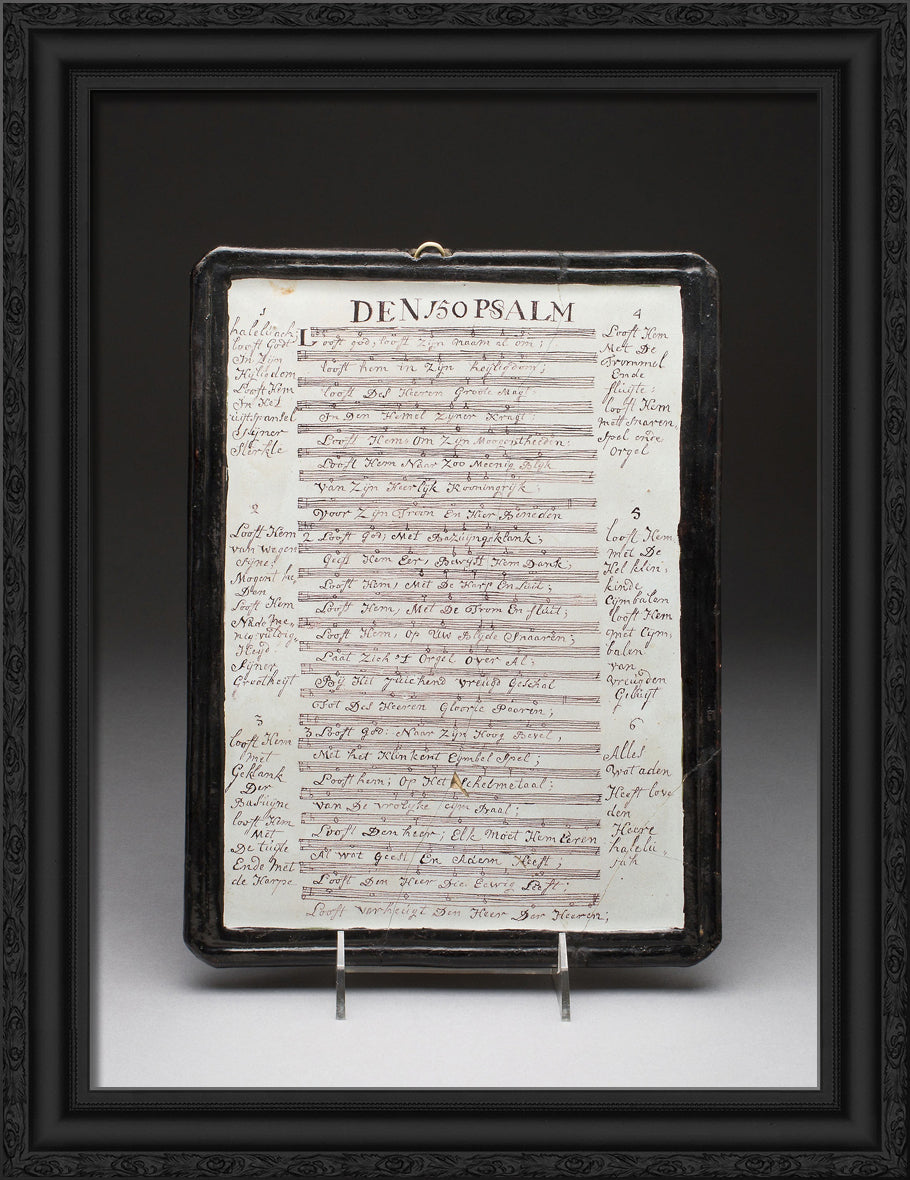 DEN 150 PSALM
1
halelu ach;
looft Godt
In Zijn
Heyligdom
Looft Hem
In Het
uijtspansel
Sijner
Sterkte
2
Looft Hem
van wegen
Sijne
Mogent he,
Den
Looft Hem
Na de me,
nig vuldig,
Heyd
Sijner
Grootheijt
3
looft Hem
met
Geklank
Der
Basuijne
looft Hem
Met
De luijte
Ende Met
de Harpe
Looft god, looft Zijn naam al om;
looft hem in Zijn heyligdom;
looft Des Heeren Groote Magt
In Den Hemel Zijner Kragt;
Looft Hem, Om Zijn Moogentheeden
Looft Hem Naar Zoo Meenig Blyk
van Zijn Heerlyk Kooningryk
Voor Zijn Troon En Hier Beneden
2 Looft God; Met Bazuijngeklank;
Geeft Hem Eer, Bewyst Hem Dank;
Looft Hem, Met De Harp En luit;
Looft Hem, Met De Trom En fluit;
Looft Hem, Op Uw Blyde Snaaren;
Laat Zich 't Orgel Over Al;
Bij Het Juichend vreugd Geschal
Tot Des Heeren Gloorie Paaren;
3 Looft god: Naar Zijn Hoog Bevel,
Met het Klinkent Cymbel Spel;
Looft hem; Op Het Schelmetaal;
van De vrolyke Cijm Baal;
Looft Den heer; Elk Moet Hem Eeren
Al wat Geest En Adem Heeft;
Looft Den Heer Die Eewig Leeft;
Looft verheugt Den Heer Der Heeren;
4
Looft Hem
Met De
Trommel
Ende
fluijte:
looft Hem
mett snaren,
Spel ende
Orgel
5
looft Hem
met De
Hel klin,
kinde
Cymbalen
looft Hem
met Cym,
balen
van
vreugden
Geluijt
6
Alles
Wat aden
Heeft love
den
Heere
halelu
jah